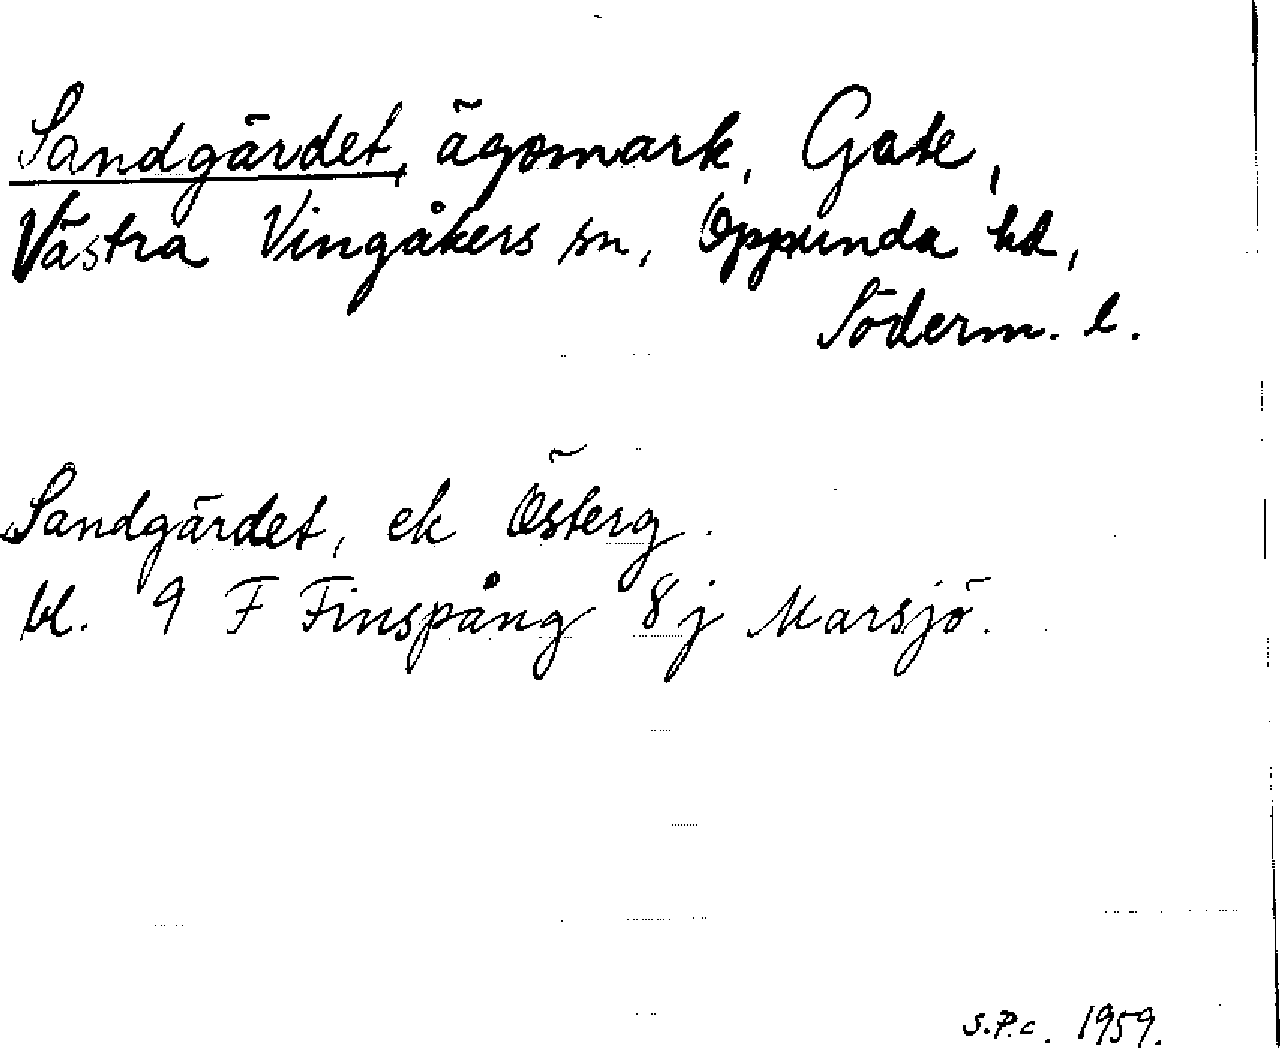 Sandgärdet, ägomark, Gate,
Västra Vingåkers sn, Oppunda hd,
Söderm. l.
Sandgärdet, ek Österg.
bl. 9 F Finspång 8j Marsjö.
S.P.c. 1959.